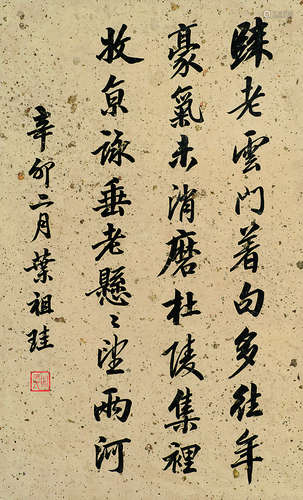 歸老雲門着句多往年
豪氣未消磨杜陵集裡
牧京詠垂老懸〻望兩河
辛卯二月葉祖珪